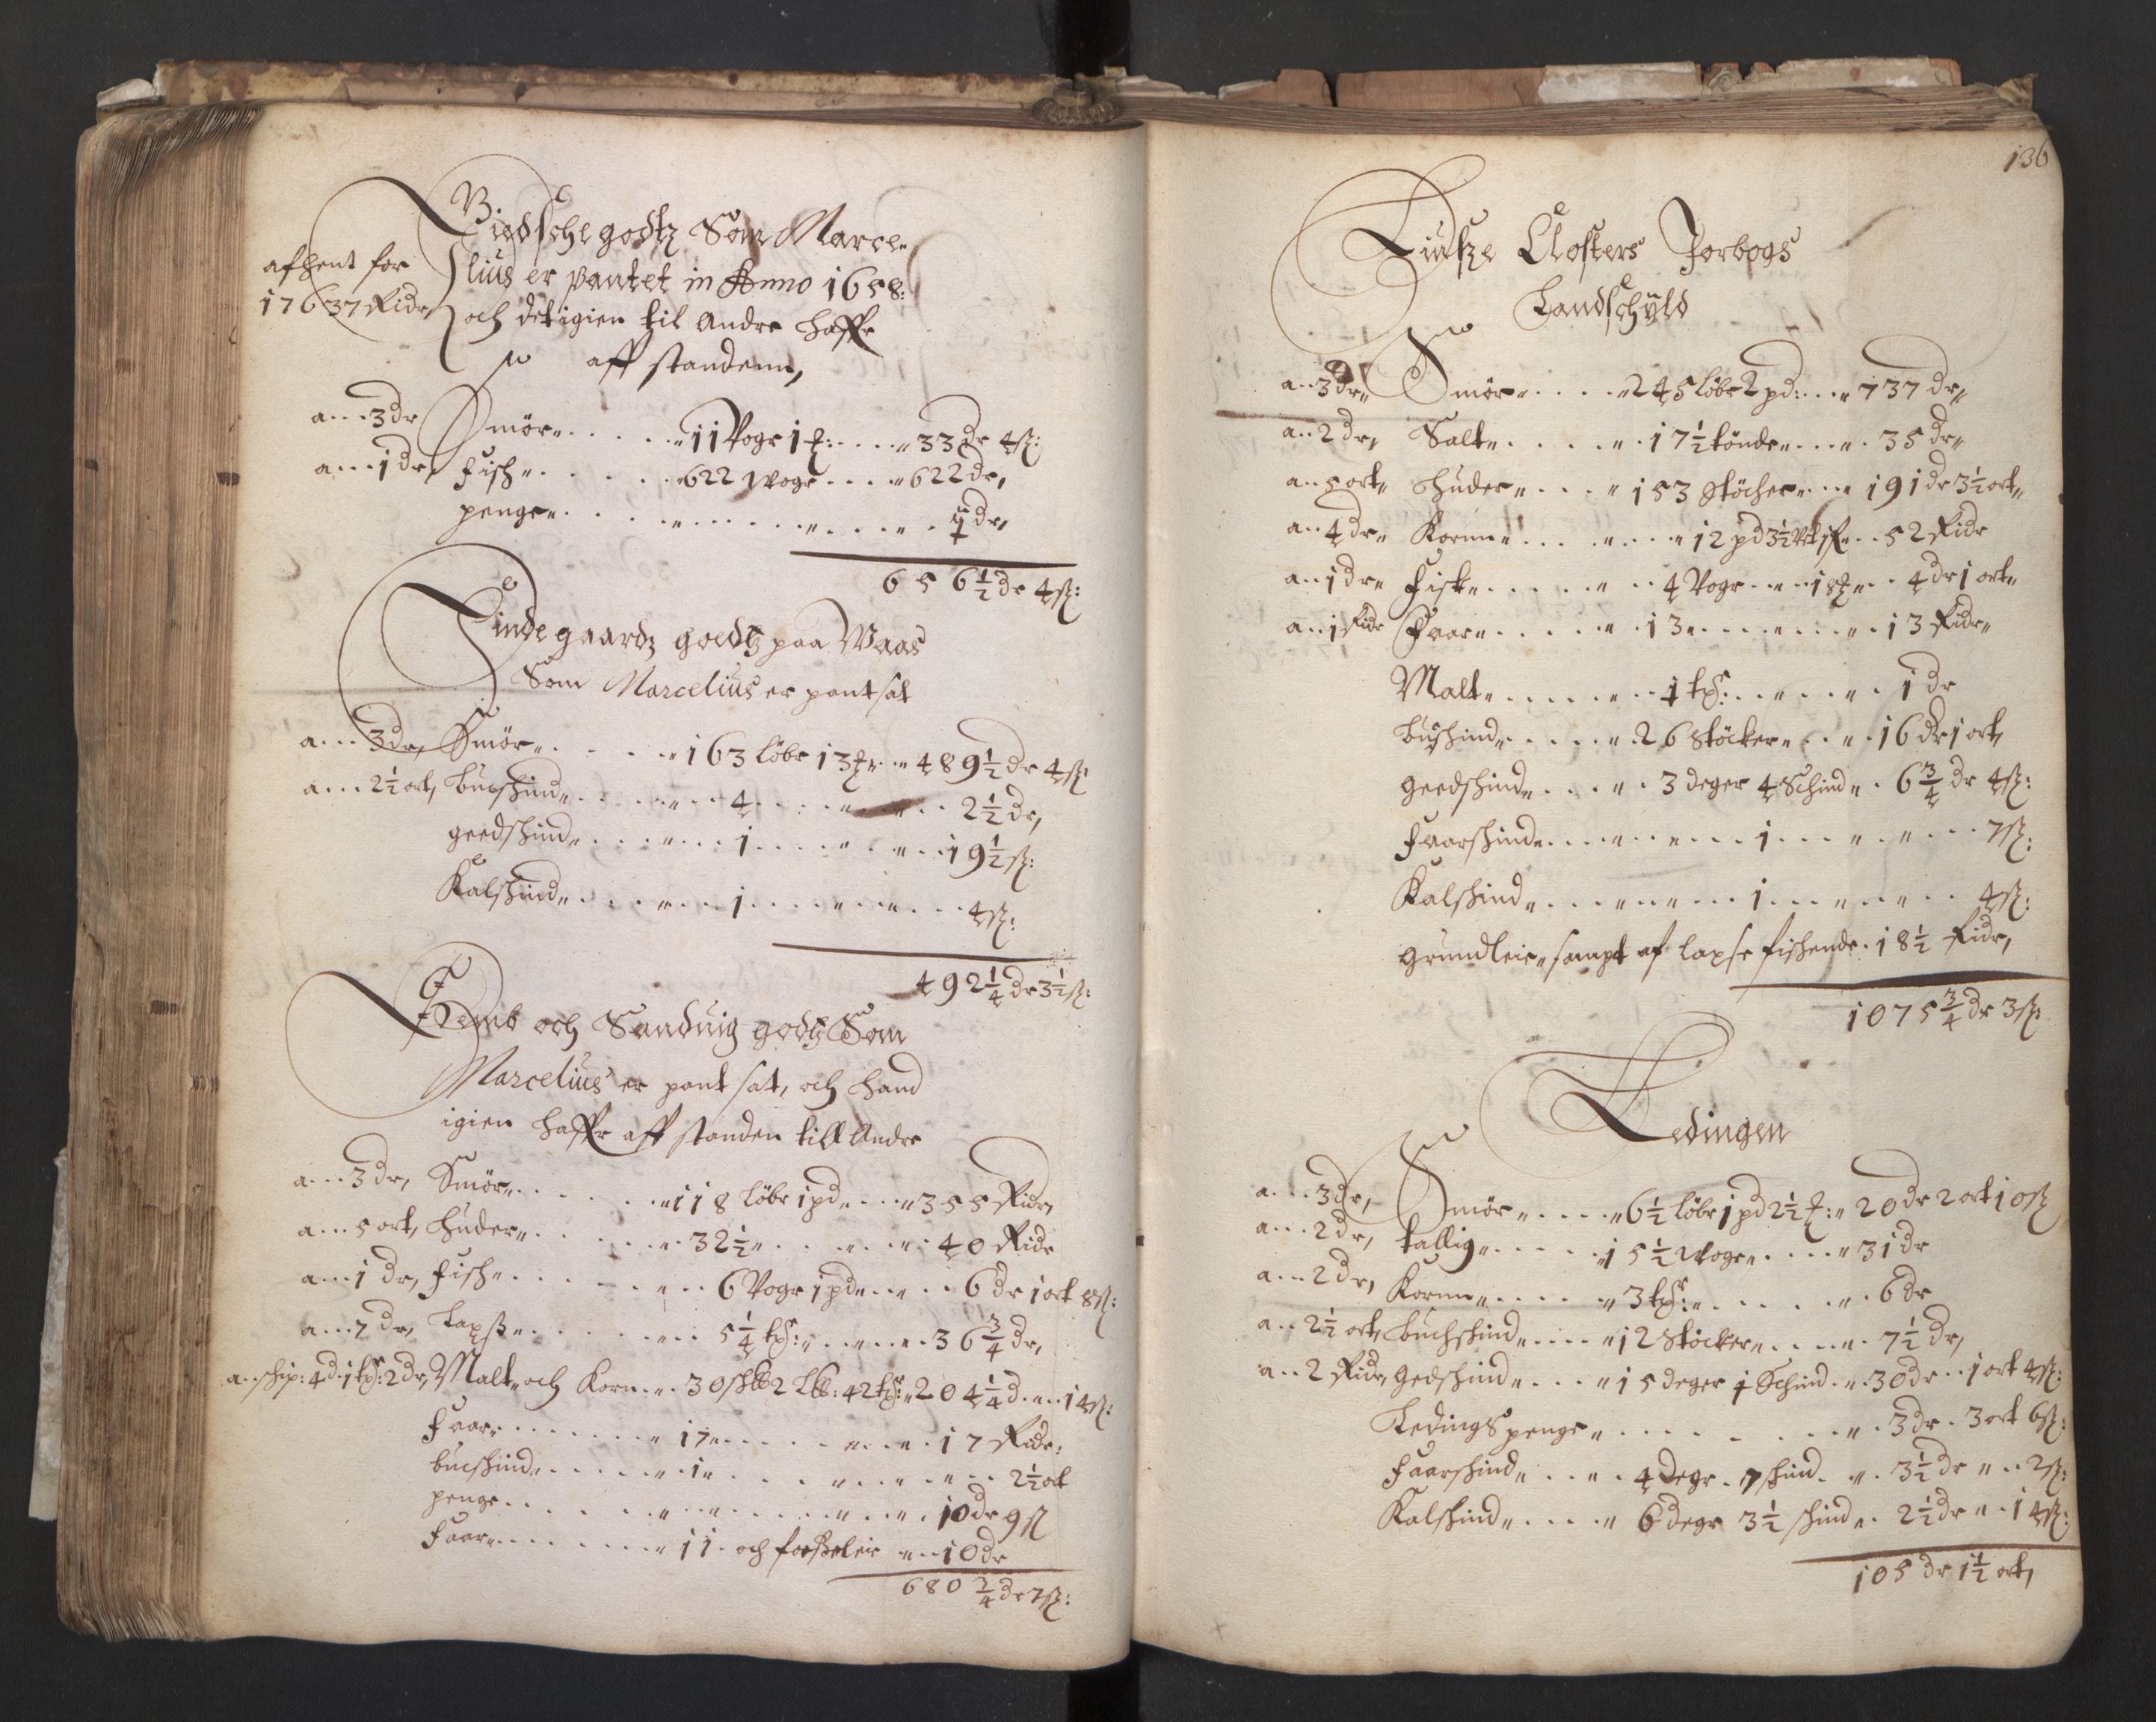 Giedsche godtz Som Marce-
afhent for
17637 Ridr
lius er pantet in Anno 1658:
och det igien til Andre haffr
aff standenn,
a... 3 dr Smör ..... 11 Vogr 1 ℔: .... 33 dr 4 ß:
a... 1 dr, Fisch ..... 622 Wogr .... 622 dr,
penge ..... 1 dr,
656½ dr 4 ß:
Findegaardz goedtz paa Waas
Som Marcelius er pant sat
a... 3 dr, Smör ..... 163 löbr 13 ℔ .. 489½ dr 4 ß
a... 2½ ort, bucskind ..... 4 ..... 2½ dr,
geedskind ..... 1 ..... 19½ ß:
Kalskind ..... 1 ..... 4 ß:
492¼ dr 3½ ß:
och Sanduig godtz Som
Marcelius er pant sat, och hand
igien haffr aff standen till Andre
a... 3 dr, Smör ..... 118 löbr 1 pd .... 355 Ridr
a... 5 ort, huder ..... 32½ ..... 40 Ridr
a... 1 dr, fisch ..... 6 Vogr 1 pd .... 6 dr 1 ort 8 ß:
a... 7 dr, Laxß ..... 5¼ tß: ..... 36¾ dr,
a. schip: 4 d. 1 tß: 2 dr, Malt och Korn .. 30 sk℔ 2 L℔: 42 tß: 204¼ d ... 14 ß:
Faar ..... 17 ..... 17 Ridr:
bucskind ..... 1 ..... 2½ ort
penge ..... 10 dr 9 ß
Faar ..... 11 och foxßeleie ... 10 dr
680¾ dr 7 ß:
136
Liutze Closters Jorbogs
Landschÿld
a.. 3 dr Smör ..... 245 löbr 2 pd: ... 737 dr
a.. 2 dr, Salt ..... 17½ tönder .... 35 dr
a.. 5 ort huder .... 153 Stöcher .... 191 dr 3½ ort
a.. 4 dr Kornn ..... 12 pd 3½ .. 52 Ridr
a.. 1 dr Fisk ..... 4 Vogr .... 18 ℔ .. 4 dr 1 ort
a.. 1 Ridr Faar ..... 13 ..... 13 Ridr
Malt ..... 1 tß: ..... 1 dr
buchind ..... 26 Stöcker .... 16 dr 1 ort,
geedskind .... 3 deger 4 Schind . 6¾ dr 4 ß:
Faarskind ..... 1 ..... 7 ß:
Kalskind ..... 1 ..... 4 ß:
grundleie, sampt af laxse fiskende . 18½ Ridr,
1075¾ dr 3 ß:
Ledingen
a... 3 dr, Smör ..... 6½ löbr 1 pd 2½ ℔: 20 dr 2 ort 10 ß
a... 2 dr, tallig ..... 15½ Wogr ..... 31 dr
a... 2 dr, Kornn ..... 3 tß: ..... 6 dr
a.. 2½ ort, buchskind .... 12 Stöcker .... 7½ dr,
a.. 2 Ridr, gedskind .... 15 deger 1 Schind .. 30 dr .. 1 ort 4 ß:
Ledings penge ..... 3 dr . 3 ort 6 ß:
Faarskind .... 4 degr . 7 skind .. 3½ dr .. 2 ß:
Kalskind .... 6 degr 3½ skind .. 2½ dr .. 14 ß:
105 dr 1½ ort,